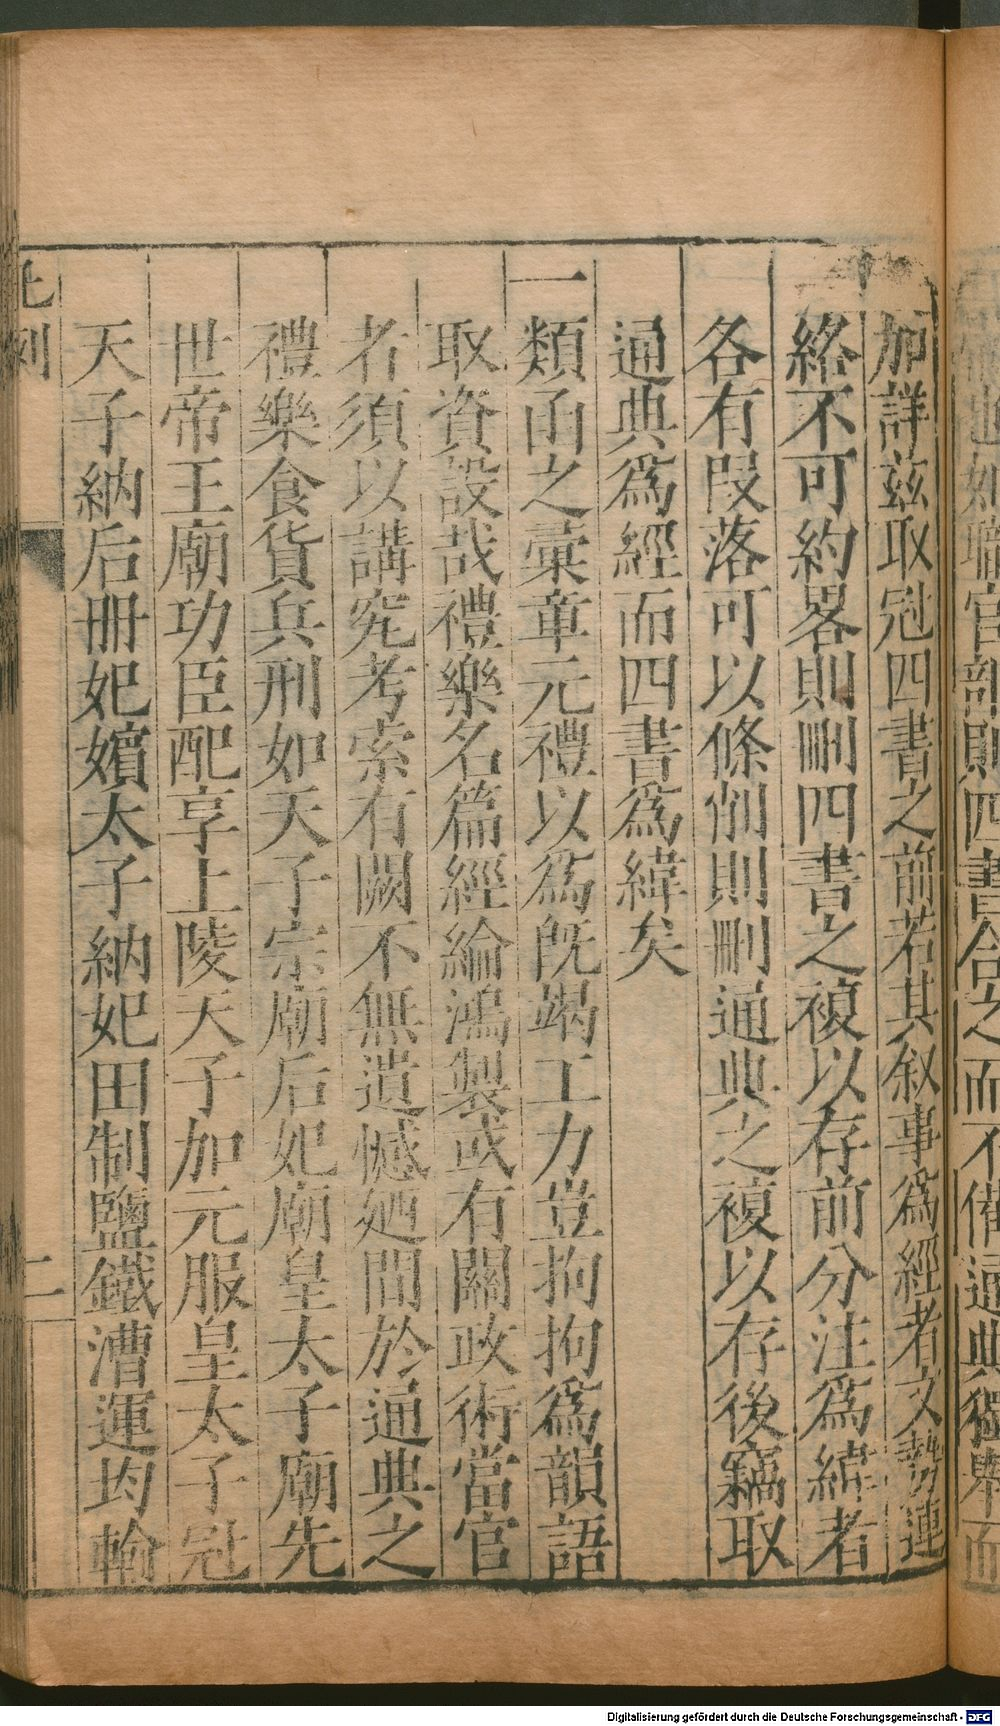 加詳茲取冠四書之前若其叙事爲經者文勢連
絡不可約畧則刪四書之複以存前分注爲緯者
各有段落可以條刪則刪通典之複以存後竊取
通典爲經而四書爲緯矣
一類函之彙章元禮以爲旣竭工力豈拘拘爲韻語
取資設哉禮樂名篇經綸鴻製或有關政術當官
者須以講究考索有闕不無遺憾廼間於通典之
禮樂食貨兵刑如天子宗廟后妃廟皇太子廟先
世帝王廟功臣配享上陵天子加元服皇太子冠
天子納后冊妃嬪太子納妃田制鹽鐵漕運均輸
凡例
二
職官部則四書合之而不備通典獨舉而
Digitalisierung gefördert durch die Deutsche Forschungsgemeinschaft - DFG